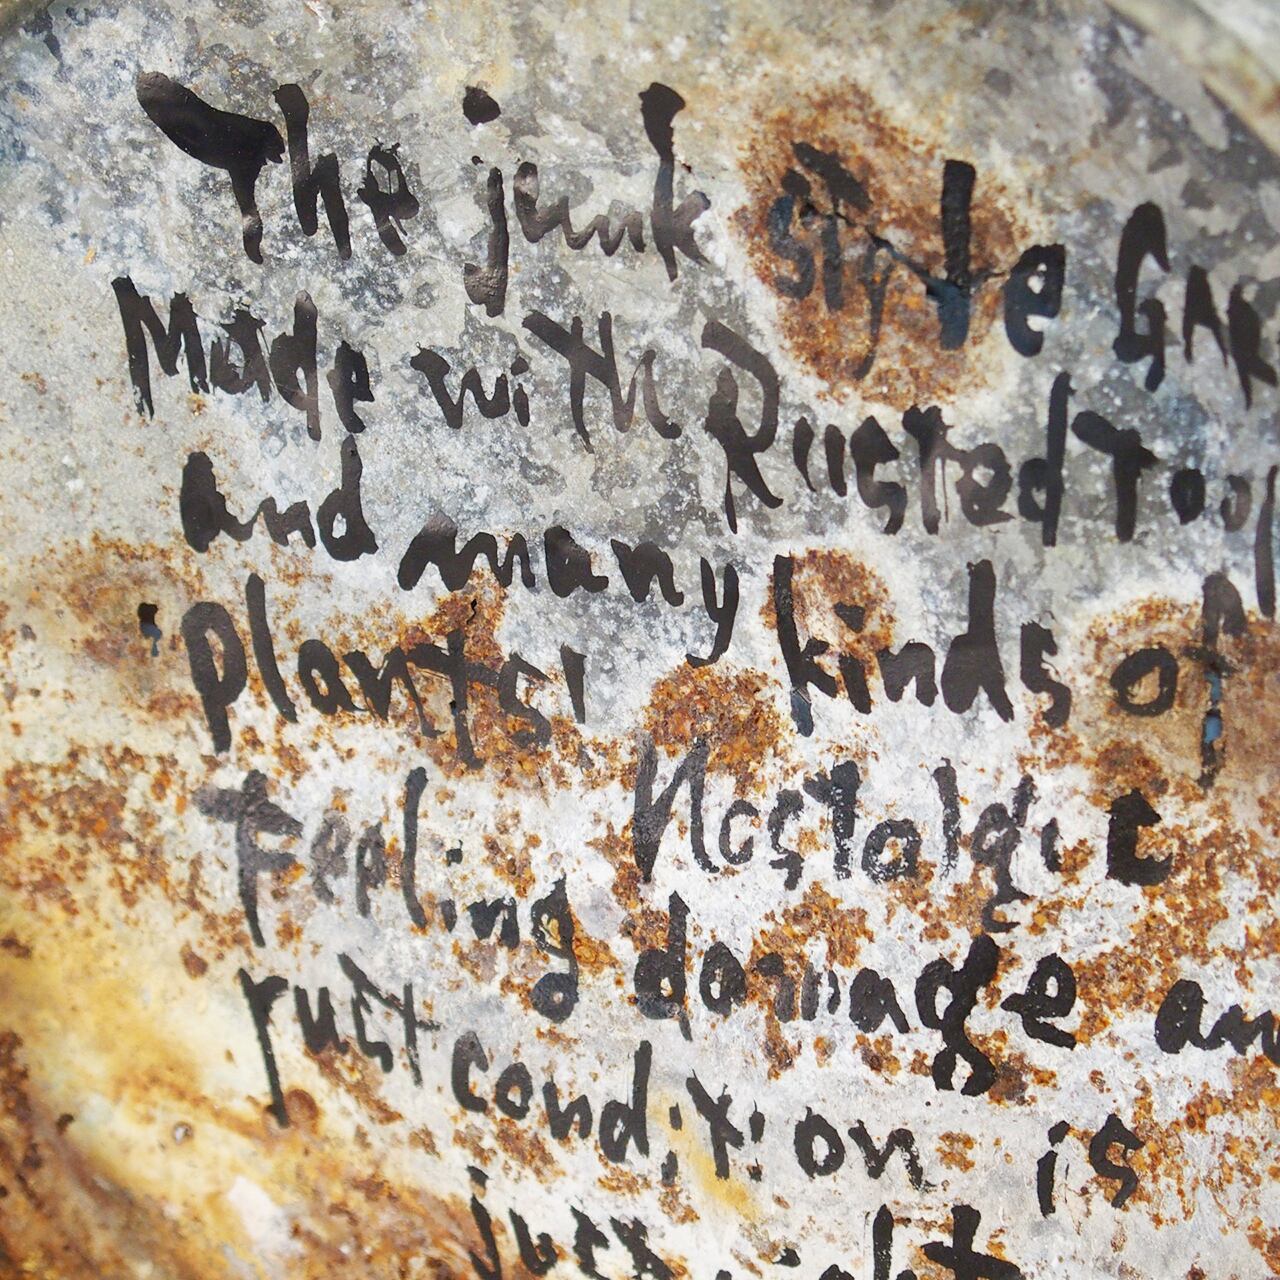 The junk style GAR
Made with Rusted Tool
and many kinds of
plants!
Feeling Nostalgic
damage an
rust condition is
just right